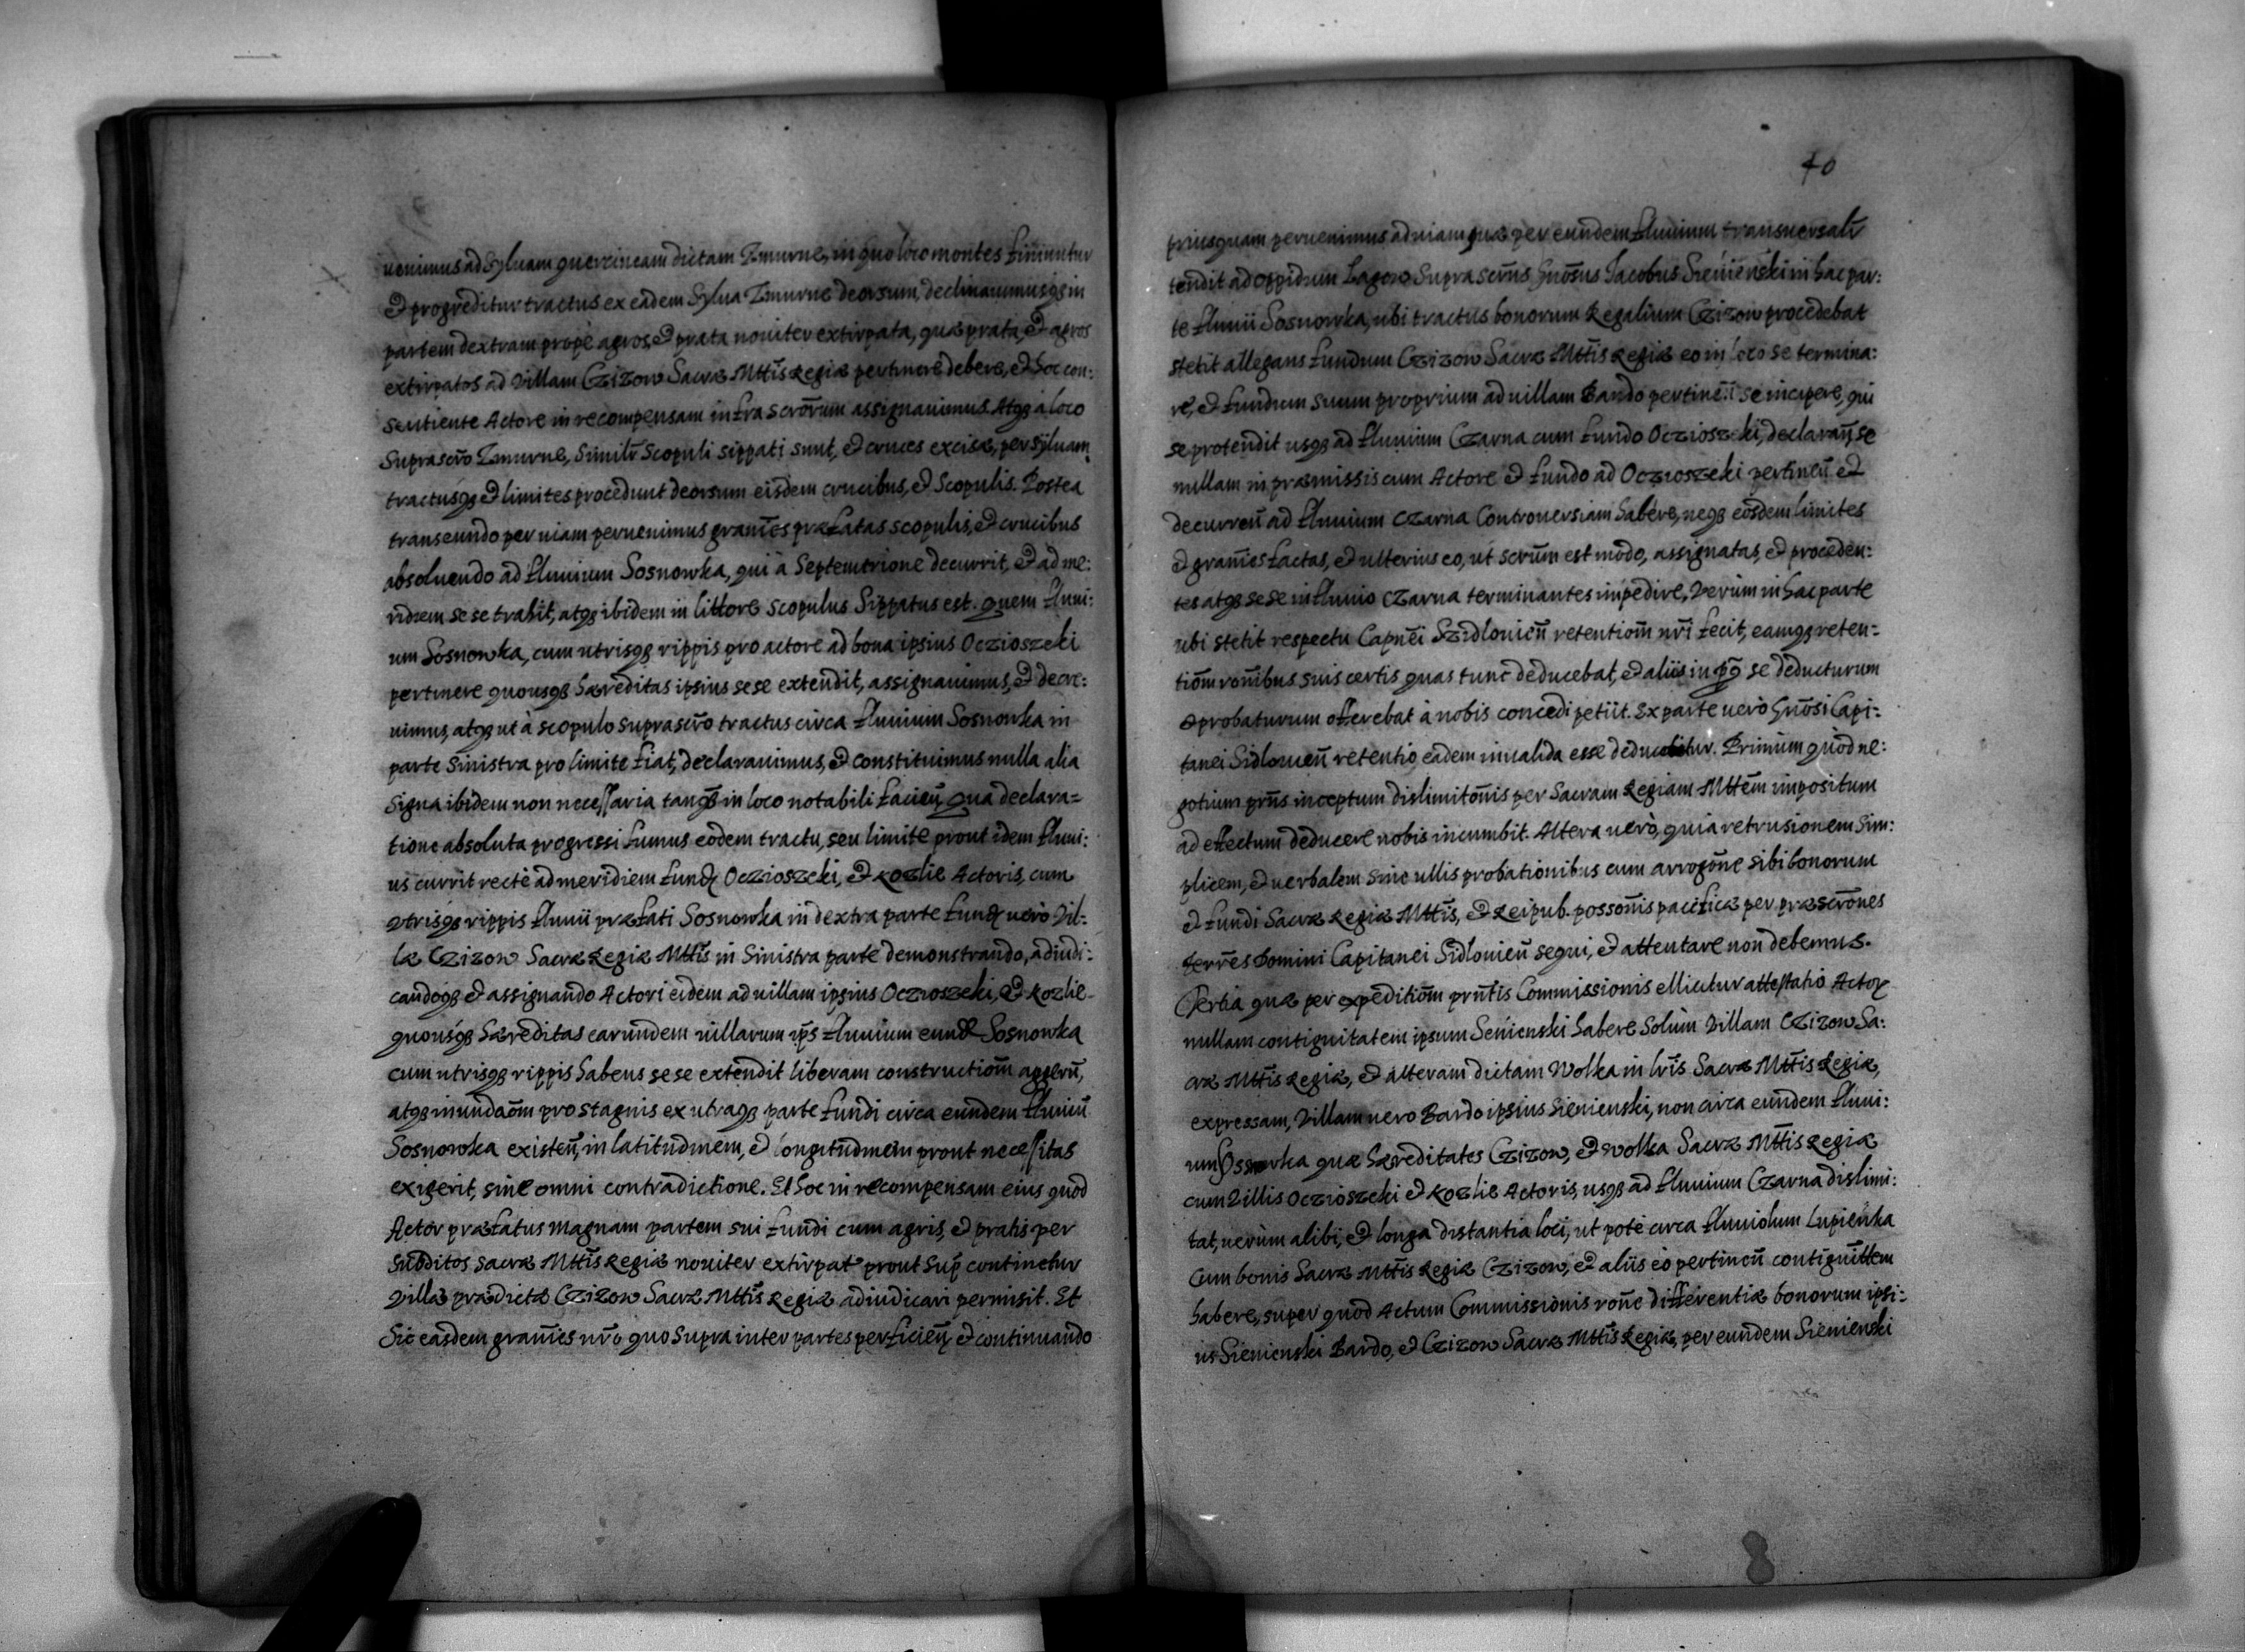 uenimus ad Syluam quercineam dictam Zmurne, in quo loco montes finiuntur
& progreditur tractus ex eadem Sylua Zmurne deorsum, declinauimusq́ in
partem dextram propè agros, & prata nouiter extirpata, quæ prata, & agros
extirpatos ad Villam Czizow Sacræ Mttis Regiæ pertinere debere, & hoc con:
sentiente Actore in recompensam infra scrōrum assignauimus. Atq́ à loco
suprascrō Zmurne, similr̄ scopuli sippati sunt, & cruces excisæ, per syluam
tractusq́ & limites procedunt deorsum eisdem crucibus, & scopulis. Postea
transeundo per uiam peruenimus granic̄es præfatas scopulis, & crucibus
absoluendo ad fluuium Sosnowka, qui à Septemtrione decurrit, & ad me:
ridiem se se trahit, atq́ ibidem in littore scopulus Sippatus est. quem fluui:
um Sosnowka, cum utrisq́ rippis pro actore ad bona ipsius Oczioszeki
pertinere quousq́ hæreditas ipsius sese extendit, assignauimus, & decre:
uimus, atq́ ut à scopulo suprascrō tractus circa fluuium Sosnowka in
parte Sinistra pro limite fiat, declarauimus, & constituimus nulla alia
signa ibidem non necessaria tanq́ in loco notabili facien̄, qua declara=
tione absoluta progressi sumus eodem tractu, seu limite prout idem fluui:
us currit rectè ad meridiem fund Oczioszeki, & Kozlie Actoris, cum
Vtrisq́ rippis fluuii præfati Sosnowka in dextra parte fund uerò Vil:
læ Czizow Sacræ Regiæ Mttis in Sinistra parte demonstrando, adiudi:
candoq́ & assignando Actori eidem ad uillam ipsius Oczioszeki, & Kozlie
quousq́ hæreditas earundem uillarum ip̄s fluuium eund Sosnowka
cum utrisq́ rippis habens sese extendit liberam constructiōm aggerū,
atq́ inundaōm pro stagnis ex utraq́ parte fundi circa eundem fluuiū
Sosnowka existen̄, in latitudinem, & longitudinem prout necessitas
exigerit, sine omni contradictione. Et hoc in recompensam eius quod
Actor præfatus magnam partem sui fundi cum agris, & pratis per
subditos sacræ Mttis Regiæ nouiter extirpat prout sup̄ continetur
Villæ prædictæ Czizow Sacræ Mttis Regiæ adiudicari permisit. Et
Sic easdem granic̄es nr̄o quo supra inter partes perficien̄, & continuando
40
priusquam peruenimus ad uiam quæ per eundem fluuium transuersalr̄
tendit ad oppidum Lagow suprascrn̄s Gnōsus Jacobus Sienienski in hac par:
te fluuii Sosnowka, ubi tractus bonorum Regalium Czizow procedebat
stetit allegans fundum Czizow Sacræ Mttis Regiæ eo in loco se termina:
re, & fundum suum proprium ad uillam Bardo pertinen̄ se incipere, qui
se protendit usq́ ad fluuium Czarna cum fundo Oczioszeki, declaran̄, se
nullam in præmissis cum Actore & fundo ad Oczioszeki pertinen̄ &
decurren̄ ad fluuium Czarna Controuersiam habere, neq́ eosdem limites
& granic̄es factas, & ulterius eo, ut scrūm est modo, assignatas, & proceden:
tes atq́ sese in fluuio Czarna terminantes impedire, Verùm in hac parte
ubi stetit respectu Capnēi Szidlouien̄ retentiōm nr̄i fecit, eamq́ reten=
tiōm ronībus suis certis quas tunc deducebat, & aliis in se deducturum
& probaturum offerebat à nobis concedi petiit. Ex parte uerò Gnōsi Capi:
tanei Sidlouien̄ retentio eadem inualida esse deducebitur. Primùm quòd ne:
gotium prn̄s inceptum dislimitōnis per Sacram Regiam Mttēm impositum
ad effectum deducere nobis incumbit. Altera uerò, quia retrusionem sim:
plicem, & uerbalem sine ullis probationibus cum arrogōne sibi bonorum
& fundi Sacræ Regiæ Mttis, & Reipub. possōnis pacificæ per præscrōnes
terrēs Domini Capitanei Sidlouien̄ sequi, & attentare non debemus.
Tertia quæ per expeditiōm prn̄tis Commissionis ellicitur attestatio Actor
nullam contiguitatem ipsum Senienski habere solùm Villam Czizow Sa:
cræ Mttis Regiæ, & alteram dictam Wolka in lrīs Sacræ Mttis Regiæ,
expressam, Villam uero Bardo ipsius Sienienski, non circa eundem fluui:
um Sosnowka quæ hæreditates Czizow, & Wolka Sacræ Mttis Regiæ
cum Villis Oczioszeki & Kozlie Actoris, usq́ ad fluuium Czarna dislimi:
tat, uerùm alibi, & longa distantia loci, ut potè circa fluuiolum Lupienka
Cum bonis Sacræ Mttis Regiæ Czizow, & aliis eò pertinen̄ contiguittem
habere, super quod Actum Commissionis ronē differentiæ bonorum ipsi:
us Sienienski Bardo, & Czizow Sacræ Mttis Regiæ, per eundem Sienienski